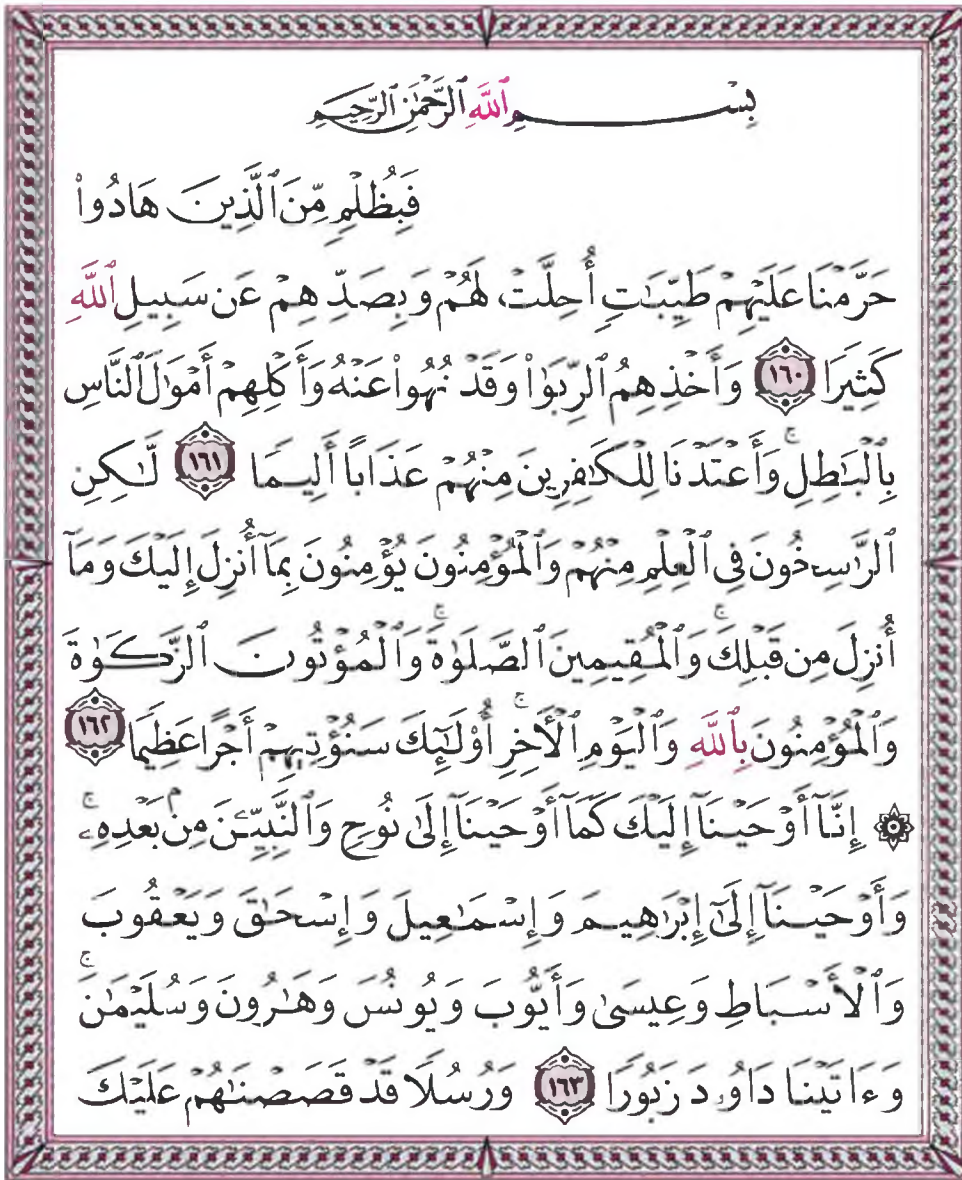 بِسْمِ ٱللَّهِ ٱلرَّحْمَٰنِ ٱلرَّحِيمِ
فَبِظُلْمٍ مِّنَ ٱلَّذِينَ هَادُوا۟
حَرَّمْنَا عَلَيْهِمْ طَيِّبَٰتٍ أُحِلَّتْ لَهُمْ وَبِصَدِّهِمْ عَن سَبِيلِ ٱللَّهِ
كَثِيرًا ١٦٠ وَأَخْذِهِمُ ٱلرِّبَوٰا۟ وَقَدْ نُهُوا۟ عَنْهُ وَأَكْلِهِمْ أَمْوَٰلَ ٱلنَّاسِ
بِٱلْبَٰطِلِ ۚ وَأَعْتَدْنَا لِلْكَٰفِرِينَ مِنْهُمْ عَذَابًا أَلِيمًا ١٦١ لَّٰكِنِ
ٱلرَّٰسِخُونَ فِى ٱلْعِلْمِ مِنْهُمْ وَٱلْمُؤْمِنُونَ يُؤْمِنُونَ بِمَآ أُنزِلَ إِلَيْكَ وَمَآ
أُنزِلَ مِن قَبْلِكَ ۚ وَٱلْمُقِيمِينَ ٱلصَّلَوٰةَ ۚ وَٱلْمُؤْتُونَ ٱلزَّكَوٰةَ
وَٱلْمُؤْمِنُونَ بِٱللَّهِ وَٱلْيَوْمِ ٱلْأَخِرِ ۚ أُو۟لَٰٓئِكَ سَنُؤْتِيهِمْ أَجْرًا عَظِيمًا ١٦٢
۞ إِنَّآ أَوْحَيْنَآ إِلَيْكَ كَمَآ أَوْحَيْنَآ إِلَىٰ نُوحٍ وَٱلنَّبِيِّۦنَ مِنۢ بَعْدِهِۦ ۚ
وَأَوْحَيْنَآ إِلَىٰٓ إِبْرَٰهِيمَ وَإِسْمَٰعِيلَ وَإِسْحَٰقَ وَيَعْقُوبَ
وَٱلْأَسْبَاطِ وَعِيسَىٰ وَأَيُّوبَ وَيُونُسَ وَهَٰرُونَ وَسُلَيْمَٰنَ ۚ
وَءَاتَيْنَا دَاوُۥدَ زَبُورًا ١٦٣ وَرُسُلًا قَدْ قَصَصْنَٰهُمْ عَلَيْكَ